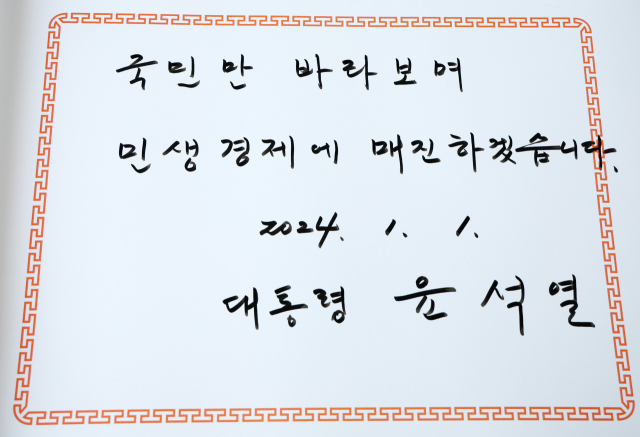 국민만 바라보며
민생경제에 매진하겠습니다.
2024. 1. 1.
대통령 윤석열